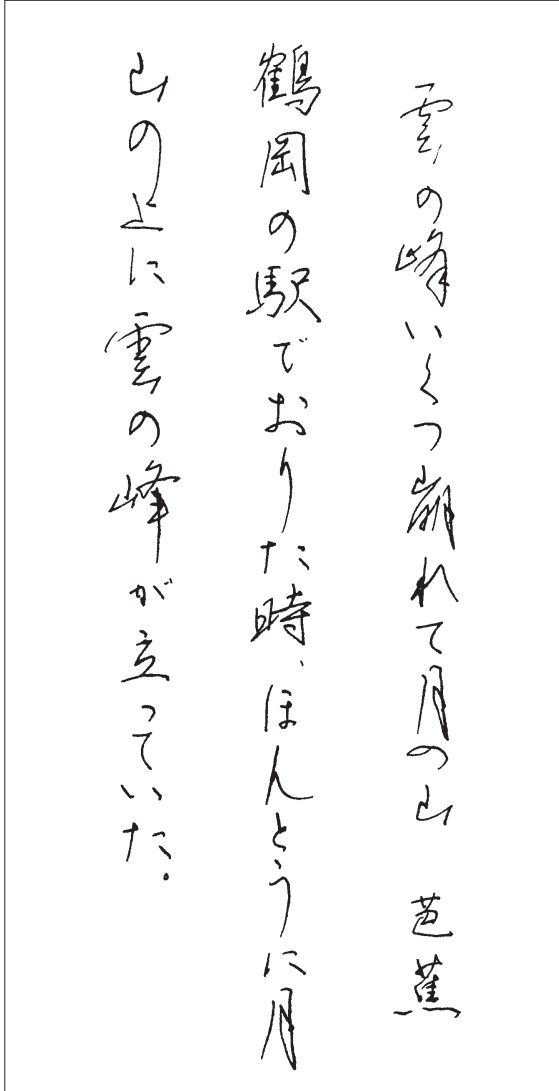 雲の峰いくつ崩れて月の山　芭蕉
鶴岡の駅でおりた時、ほんとうに月
山の上に雲の峰が立っていた。